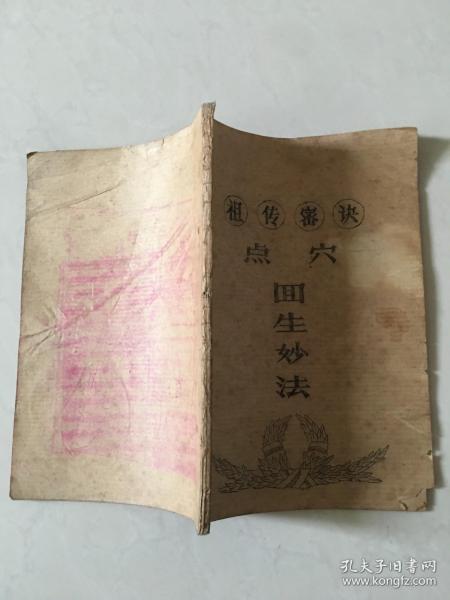 祖传密诀
点穴
回生妙法
孔夫子旧书网
www.kongfz.com